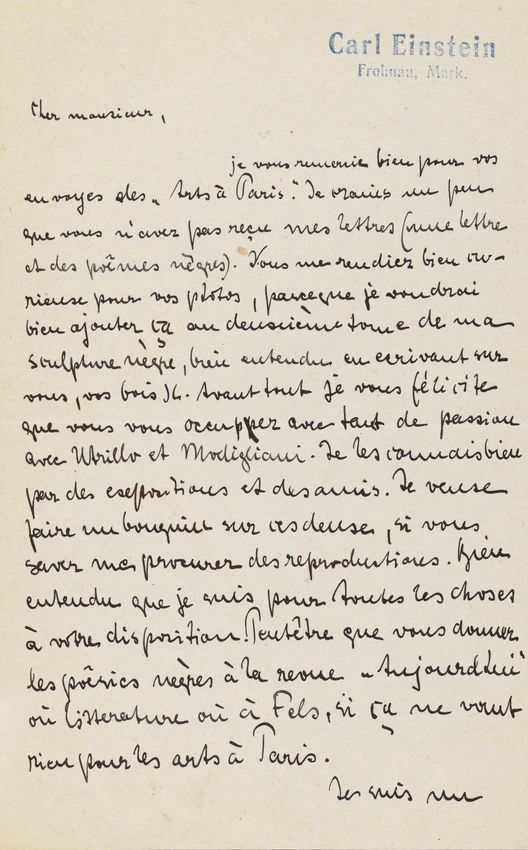 Carl Einstein
Frohnau, Mark.
Cher monsieur,
je vous remercie bien pour vos
envoyes des „Arts à Paris". Je crains un peu
que vous n'avez pas reçu mes lettres (une lettre
et des poêmes nègres). Vous me rendiez bien cu-
rieuse pour vos photos, parceque je voudrai
bien ajouter ça au deuxième tome de ma
sculpture nègre, bien entendu en ecrivant sur
vous, vos bois. Avant tout je vous félicite
que vous vous occuppez avec tant de passion
avec Utrillo et Modigliani. Je les connais bien
par des expositions et des amis. Je veuse
faire un bouquin sur ces deuse, si vous
savez me procurer des reproductions. Bien
entendu que je suis pour toutes les choses
à votre disposition. Peutêtre que vous donner
les poêsies nègres à la revue „Aujourd'hui"
où Litterature où à Fels, si ça ne vaut
rien pour les arts à Paris.
Je suis un